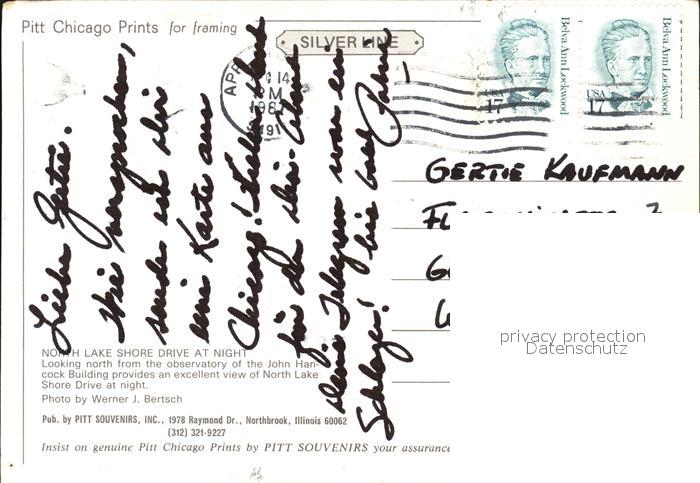 Pitt Chicago Prints for framing
SILVER LINE
APR 14
PM
1987
Belva Ann Lockwood
USA
17
Belva Ann Lockwood
USA
17
Liebe Gertie.
Wie versprochen,
sende ich dir
eine Karte aus
Chicago! Vielen Dank
für
dein Telegram war ein
Schlager! bis bald
GERTIE KAUFMANN
NORTH LAKE SHORE DRIVE AT NIGHT
Looking north from the observatory of the John Han-
cock Building provides an excellent view of North Lake
Shore Drive at night.
Photo by Werner J. Bertsch
Pub. by PITT SOUVENIRS, INC., 1978 Raymond Dr., Northbrook, Illinois 60062
(312) 321-9227
Insist on genuine Pitt Chicago Prints by PITT SOUVENIRS your assurance
privacy protection
Datenschutz